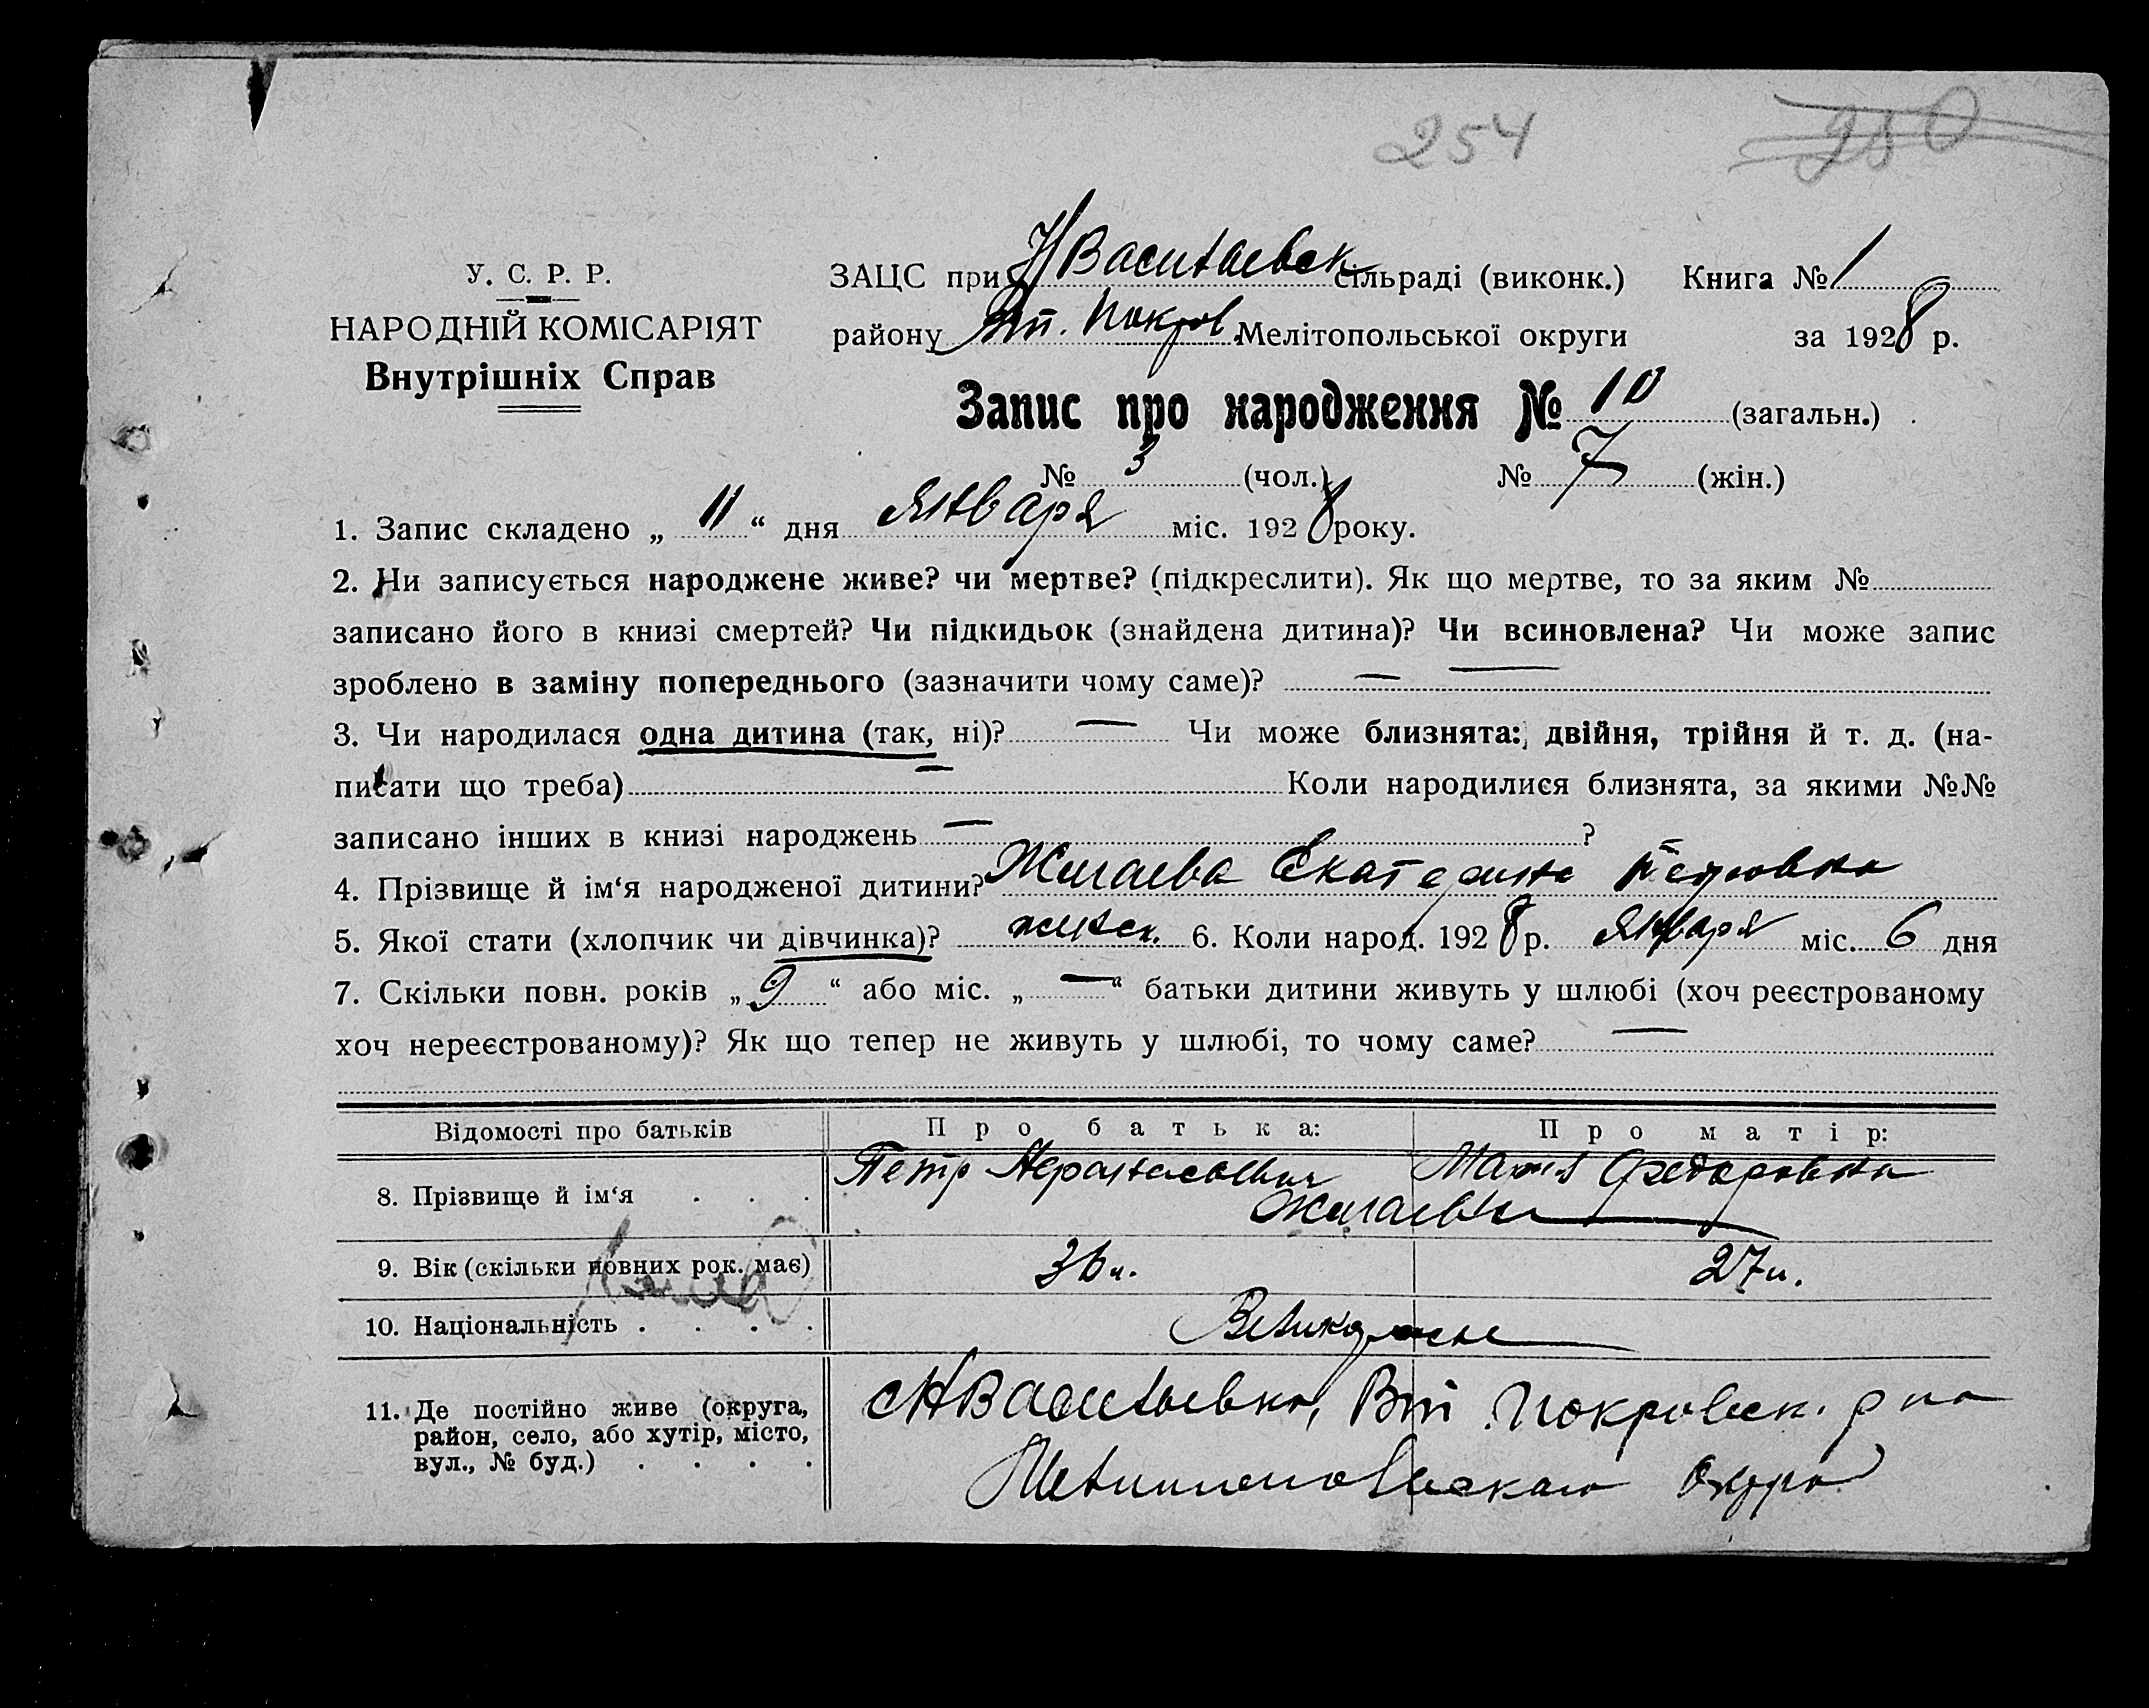 254 980
У. С. Р. Р.
НАРОДНІЙ КОМІСАРІЯТ
Внутрішніх Справ
ЗАЦС при Н Васильевск сільраді (виконк.) Книга № 1
району Вт. Покров. Мелітопольської округи за 1928 р.
Запис про народження № 10 (загальн.)
№ 3 (чол.) № 7 (жін.)
1. Запис складено „ 11 “ дня Января міс. 1928 року.
2. Чи записується народжене живе? чи мертве? (підкреслити). Як що мертве, то за яким №
записано його в книзі смертей? Чи підкидьок (знайдена дитина)? Чи всиновлена? Чи може запис
зроблено в заміну попереднього (зазначити чому саме)? — —
3. Чи народилася одна дитина (так, ні)? — Чи може близнята: двійня, трійня й т. д. (на-
писати що треба) — Коли народилися близнята, за якими №№
записано інших в книзі народжень — ?
4. Прізвище й ім‘я народженої дитини? Жигаева Екатерина Петровна
5. Якої стати (хлопчик чи дівчинка)? женск. 6. Коли народ. 1928 р. Января міс. 6 дня
7. Скільки повн. років „ 9 “ або міс. „ — “ батьки дитини живуть у шлюбі (хоч реєстрованому
хоч нереєстрованому)? Як що тепер не живуть у шлюбі, то чому саме? —
Відомості про батьків Про батька: Про матір:
8. Прізвище й ім‘я . . . Петр Мария Федоровна
Жигаевы
9. Вік (скільки повних рок. має) 36 л. 27 л.
10. Національність . . . . Великороссы
11. Де постійно живе (округа,
район, село, або хутір, місто,
вул., № буд.) . . . .
с Н Васильевка, Вт Покровск. р на
Мелитопольского Округа